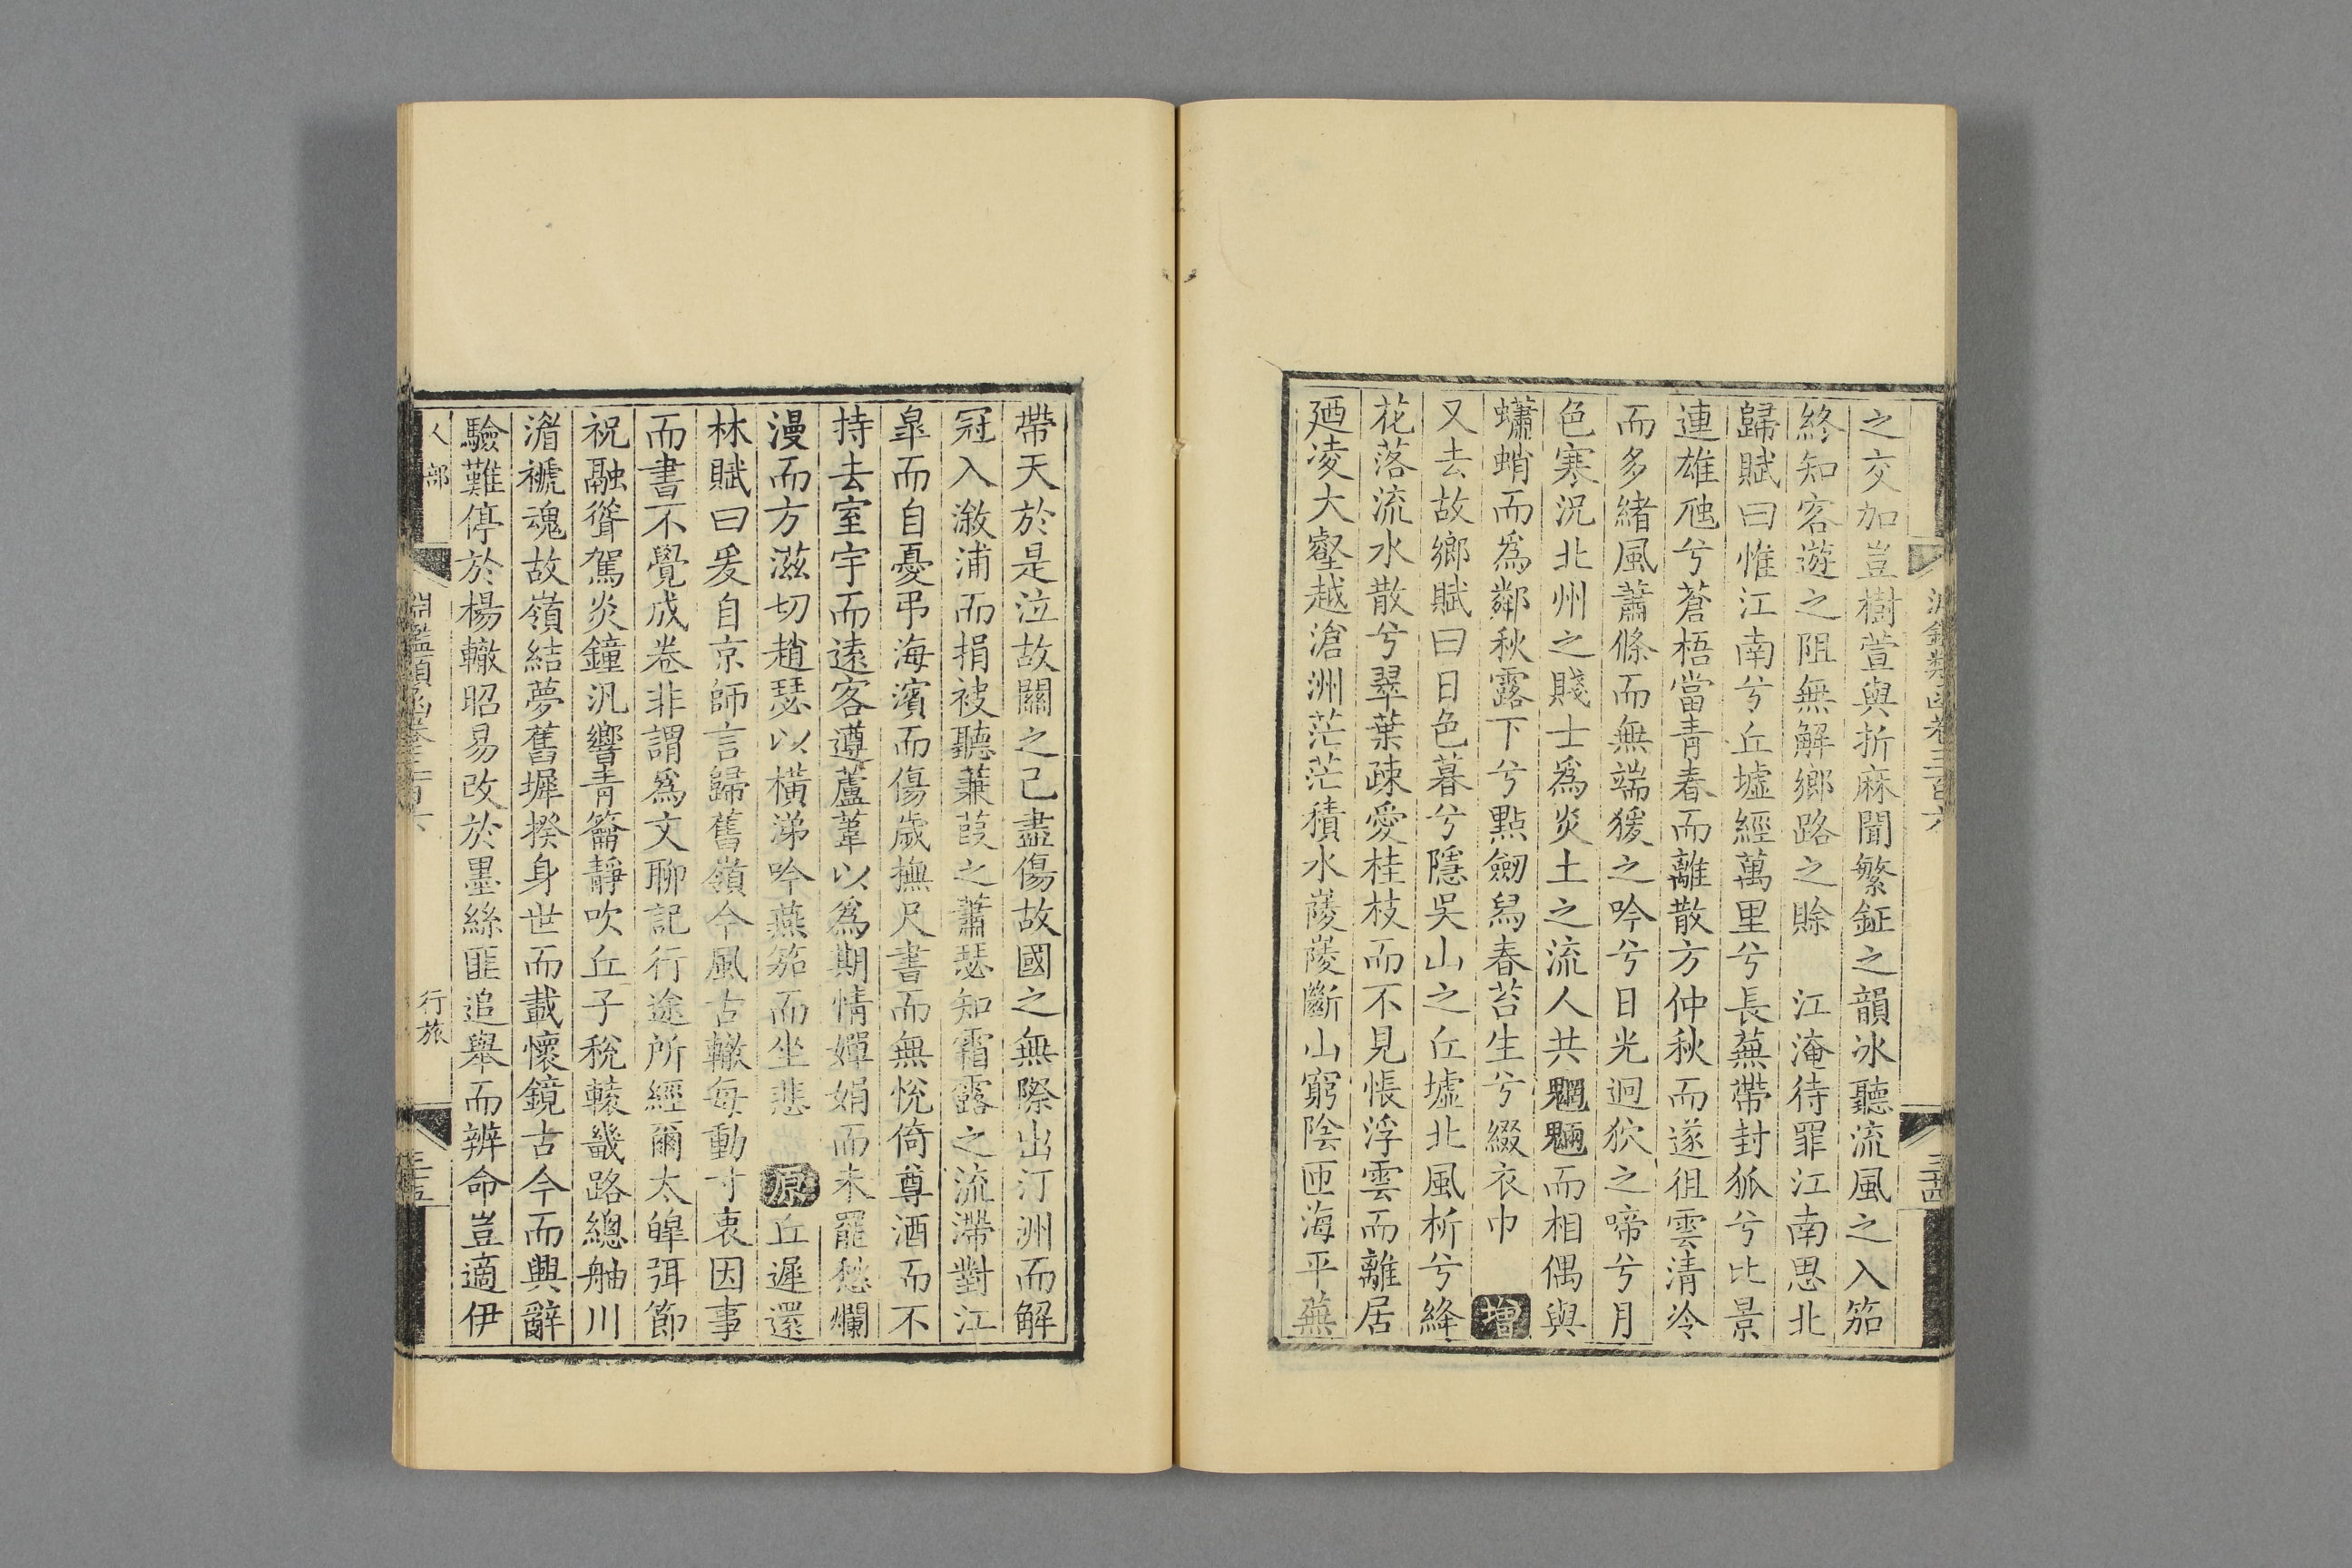 淵鑑類函卷三百六
三十四
之交加豈樹萱與折麻聞繁鉦之韻冰聽流風之入笳
終知客遊之阻無解鄉路之賖 江淹待罪江南思北
歸賦曰惟江南兮丘墟經萬里兮長蕪帶封狐兮比景
連雄虺兮蒼梧當青春而離散方仲秋而遂徂雲清泠
而多緒風蕭條而無端猨之吟兮日光迥狖之啼兮月
色寒況北州之賤士爲炎土之流人共魍魎而相偶與
蠨蛸而爲鄰秋露下兮點劒舄春苔生兮綴衣巾 增
又去故鄉賦曰日色暮兮隱吳山之丘墟北風㭊兮絳
花落流水散兮翠葉疎愛桂枝而不見悵浮雲而離居
廼凌大壑越滄洲茫茫積水蔆蔆斷山窮陰匝海平蕪
帶天於是泣故關之已盡傷故國之無際出汀洲而解
冠入漵浦而捐袂聽蒹葭之蕭瑟知霜露之流滯對江
皐而自憂弔海濱而傷歲撫尺書而無悅倚尊酒而不
持去室宇而遠客遵蘆葦以爲期情嬋娟而未罷愁爛
漫而方滋切趙瑟以橫涕吟燕笳而坐悲 原丘遲還
林賦曰爰自京師言歸舊嶺今風古轍每動寸衷因事
而書不覺成卷非謂爲文聊記行途所經爾太皥弭節
祝融聳駕炎鐘汎響青籥靜吹丘子稅轅畿路總舳川
渚褫魂故嶺結夢舊墀揆身世而載懷鏡古今而興辭
驗難停於楊轍昭易改於墨絲匪追舉而辨命豈適伊
人部
淵鑑類函卷三百六
行旅
三十五